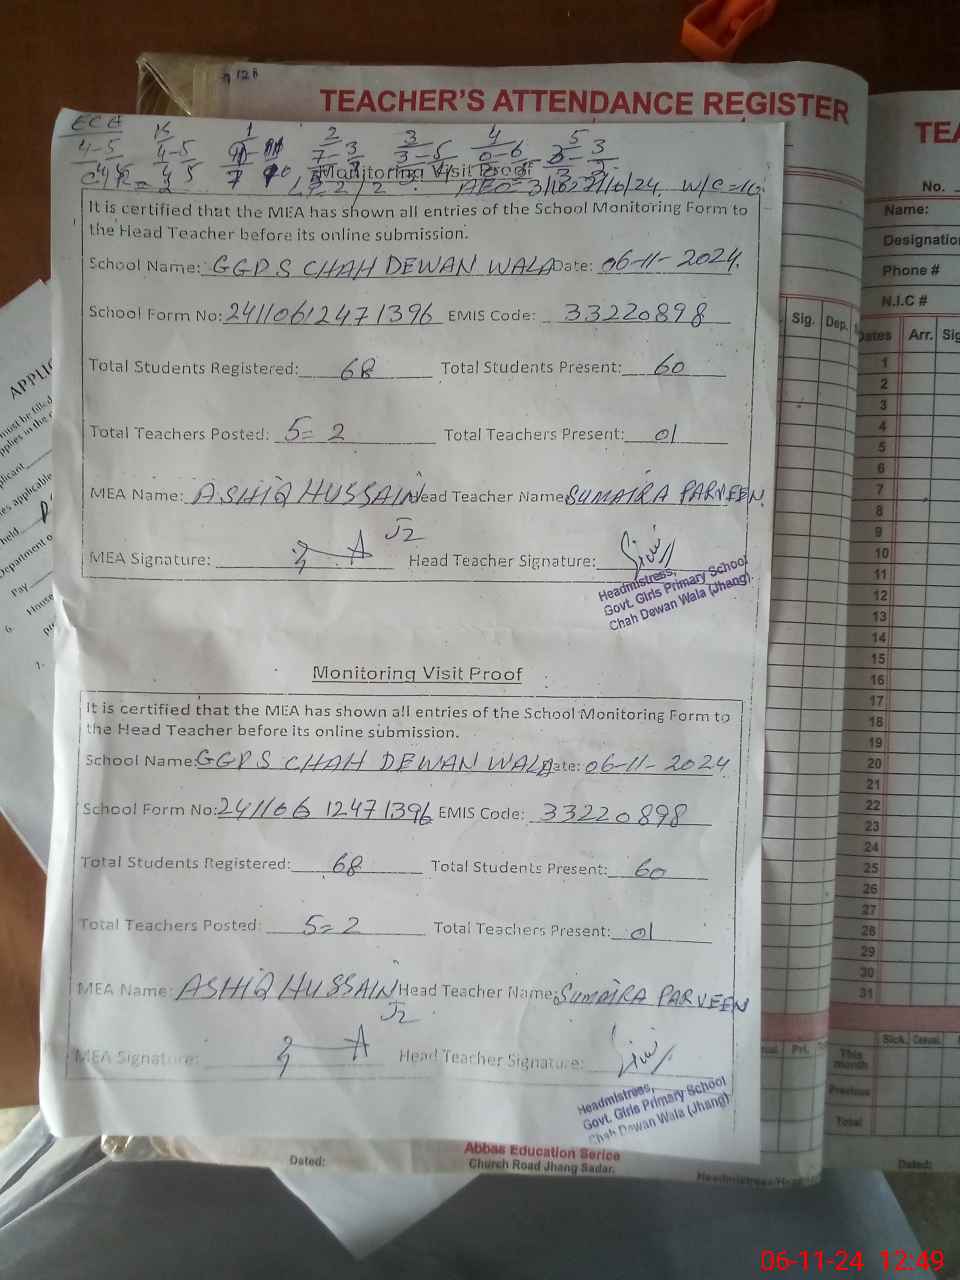 128
TEACHER'S ATTENDANCE REGISTER
ECE K 1 2 3 4 5
4-5 4-5 7-3 3-5 0-6 3-3
Monitoring Visit Proof
W/C=10
It is certified that the MEA has shown all entries of the School Monitoring Form to
the Head Teacher before its online submission.
School Name: GGPS CHAH DEWAN WALA Date: 06-11-2024.
School Form No: 24110612471396 EMIS Code: 33220898
Total Students Registered: 68 Total Students Present: 60
Total Teachers Posted: 5=2 Total Teachers Present: 01
MEA Name: ASHIQ HUSSAIN Head Teacher Name: SUMAIRA PARVEEN
J2
MEA Signature: Head Teacher Signature:
Headmistress,
Govt. Girls Primary School
Chah Dewan Wala (Jhang).
Monitoring Visit Proof
It is certified that the MEA has shown all entries of the School Monitoring Form to
the Head Teacher before its online submission.
School Name: GGPS CHAH DEWAN WALA Date: 06-11-2024
School Form No: 24110612471396 EMIS Code: 33220898
Total Students Registered: 68 Total Students Present: 60
Total Teachers Posted: 5=2 Total Teachers Present: 01
MEA Name: ASHIQ HUSSAIN Head Teacher Name: SUMAIRA PARVEEN
J2
MEA Signature: Head Teacher Signature:
Headmistress,
Govt. Girls Primary School
Chah Dewan Wala (Jhang)
Abbas Education Serice
Dated: Church Road Jhang Sadar.
Sig. Dep.
TEA
No.
Name:
Designation
Phone #
N.I.C #
Dates Arr. Sig
1
2
3
4
5
6
7
8
9
10
11
12
13
14
15
16
17
18
19
20
21
22
23
24
25
26
27
28
29
30
31
Sick. Casual.
This
month
Previous
Total
Dated:
06-11-24 12:49